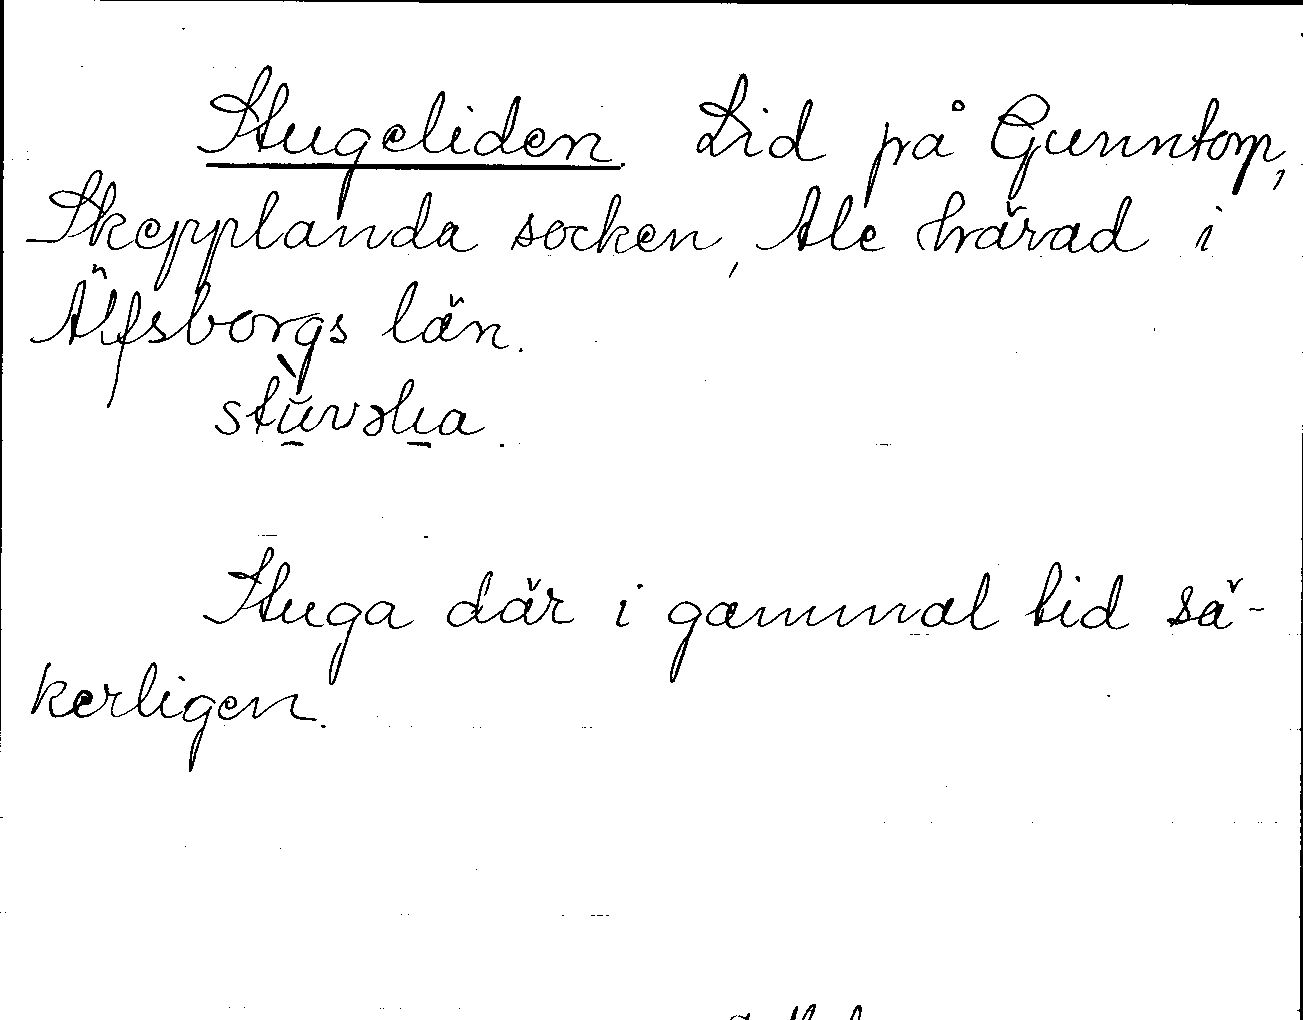 Stugeliden. Lid på Gunntorp,
Skepplanda socken, Ale härad i
Älfsborgs län.
Stuga där i gammal tid sä-
kerligen.